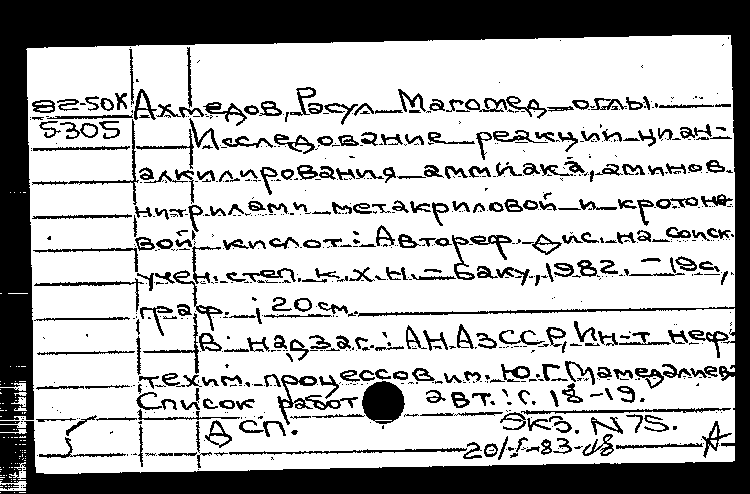 82-50К Ахмедов, Расул Магомед оглы.
5305 Исследование реакции циан-
алкилирования аммиака, аминов
нитрилами метакриловой и кротоно-
вой кислот: Автореф. дис. на соиск.
учен. степ. к.х.н. - Баку, 1982. - 19с,
граф. ; 20см.
В надзаг.: АН АзССР, Ин-т неф-
техим. процессов им. Ю.Г. Мамедалиева
Список работ авт.: с. 18-19.
ДСП. Экз. N 75.